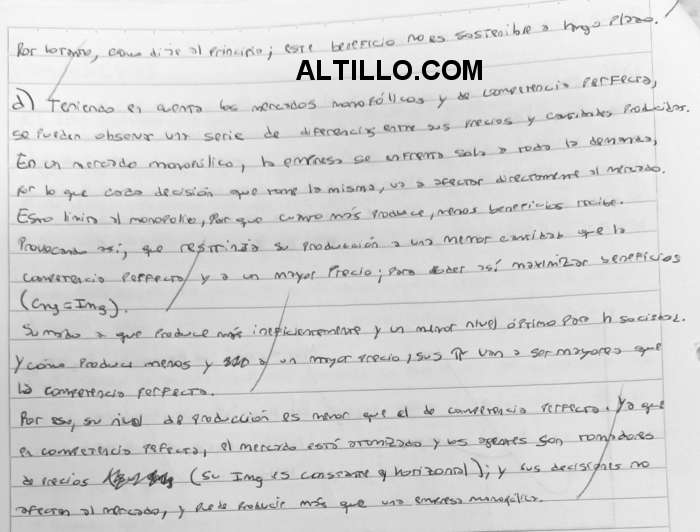 Por lo tanto, como dije al principio; este beneficio no es sostenible a largo plazo.
ALTILLO.COM
d) Teniendo en cuenta los mercados monopólicos y de competencia perfecta,
se pueden observar una serie de diferencias entre sus precios y cantidades producidas.
En un mercado monopólico, la empresa se enfrenta sola a toda la demanda,
por lo que cada decisión que tome la misma, va a afectar directamente al mercado.
Esto limita al monopolio, porque cuanto más produce, menos beneficios recibe.
Provocando así, que restrinja su producción a una menor cantidad que la
competencia perfecta y a un mayor precio; para poder así maximizar beneficios
(Cmg = Img).
Sumado a que produce más ineficientemente y un menor nivel óptimo para la sociedad.
Y como produce menos y a un mayor precio, sus π van a ser mayores que
la competencia perfecta.
Por eso, su nivel de producción es menor que el de competencia perfecta. Ya que
en competencia perfecta, el mercado está atomizado y los agentes son tomadores
de precios (su Img es constante y horizontal); y sus decisiones no
afectan al mercado, y puede producir más que una empresa monopólica.